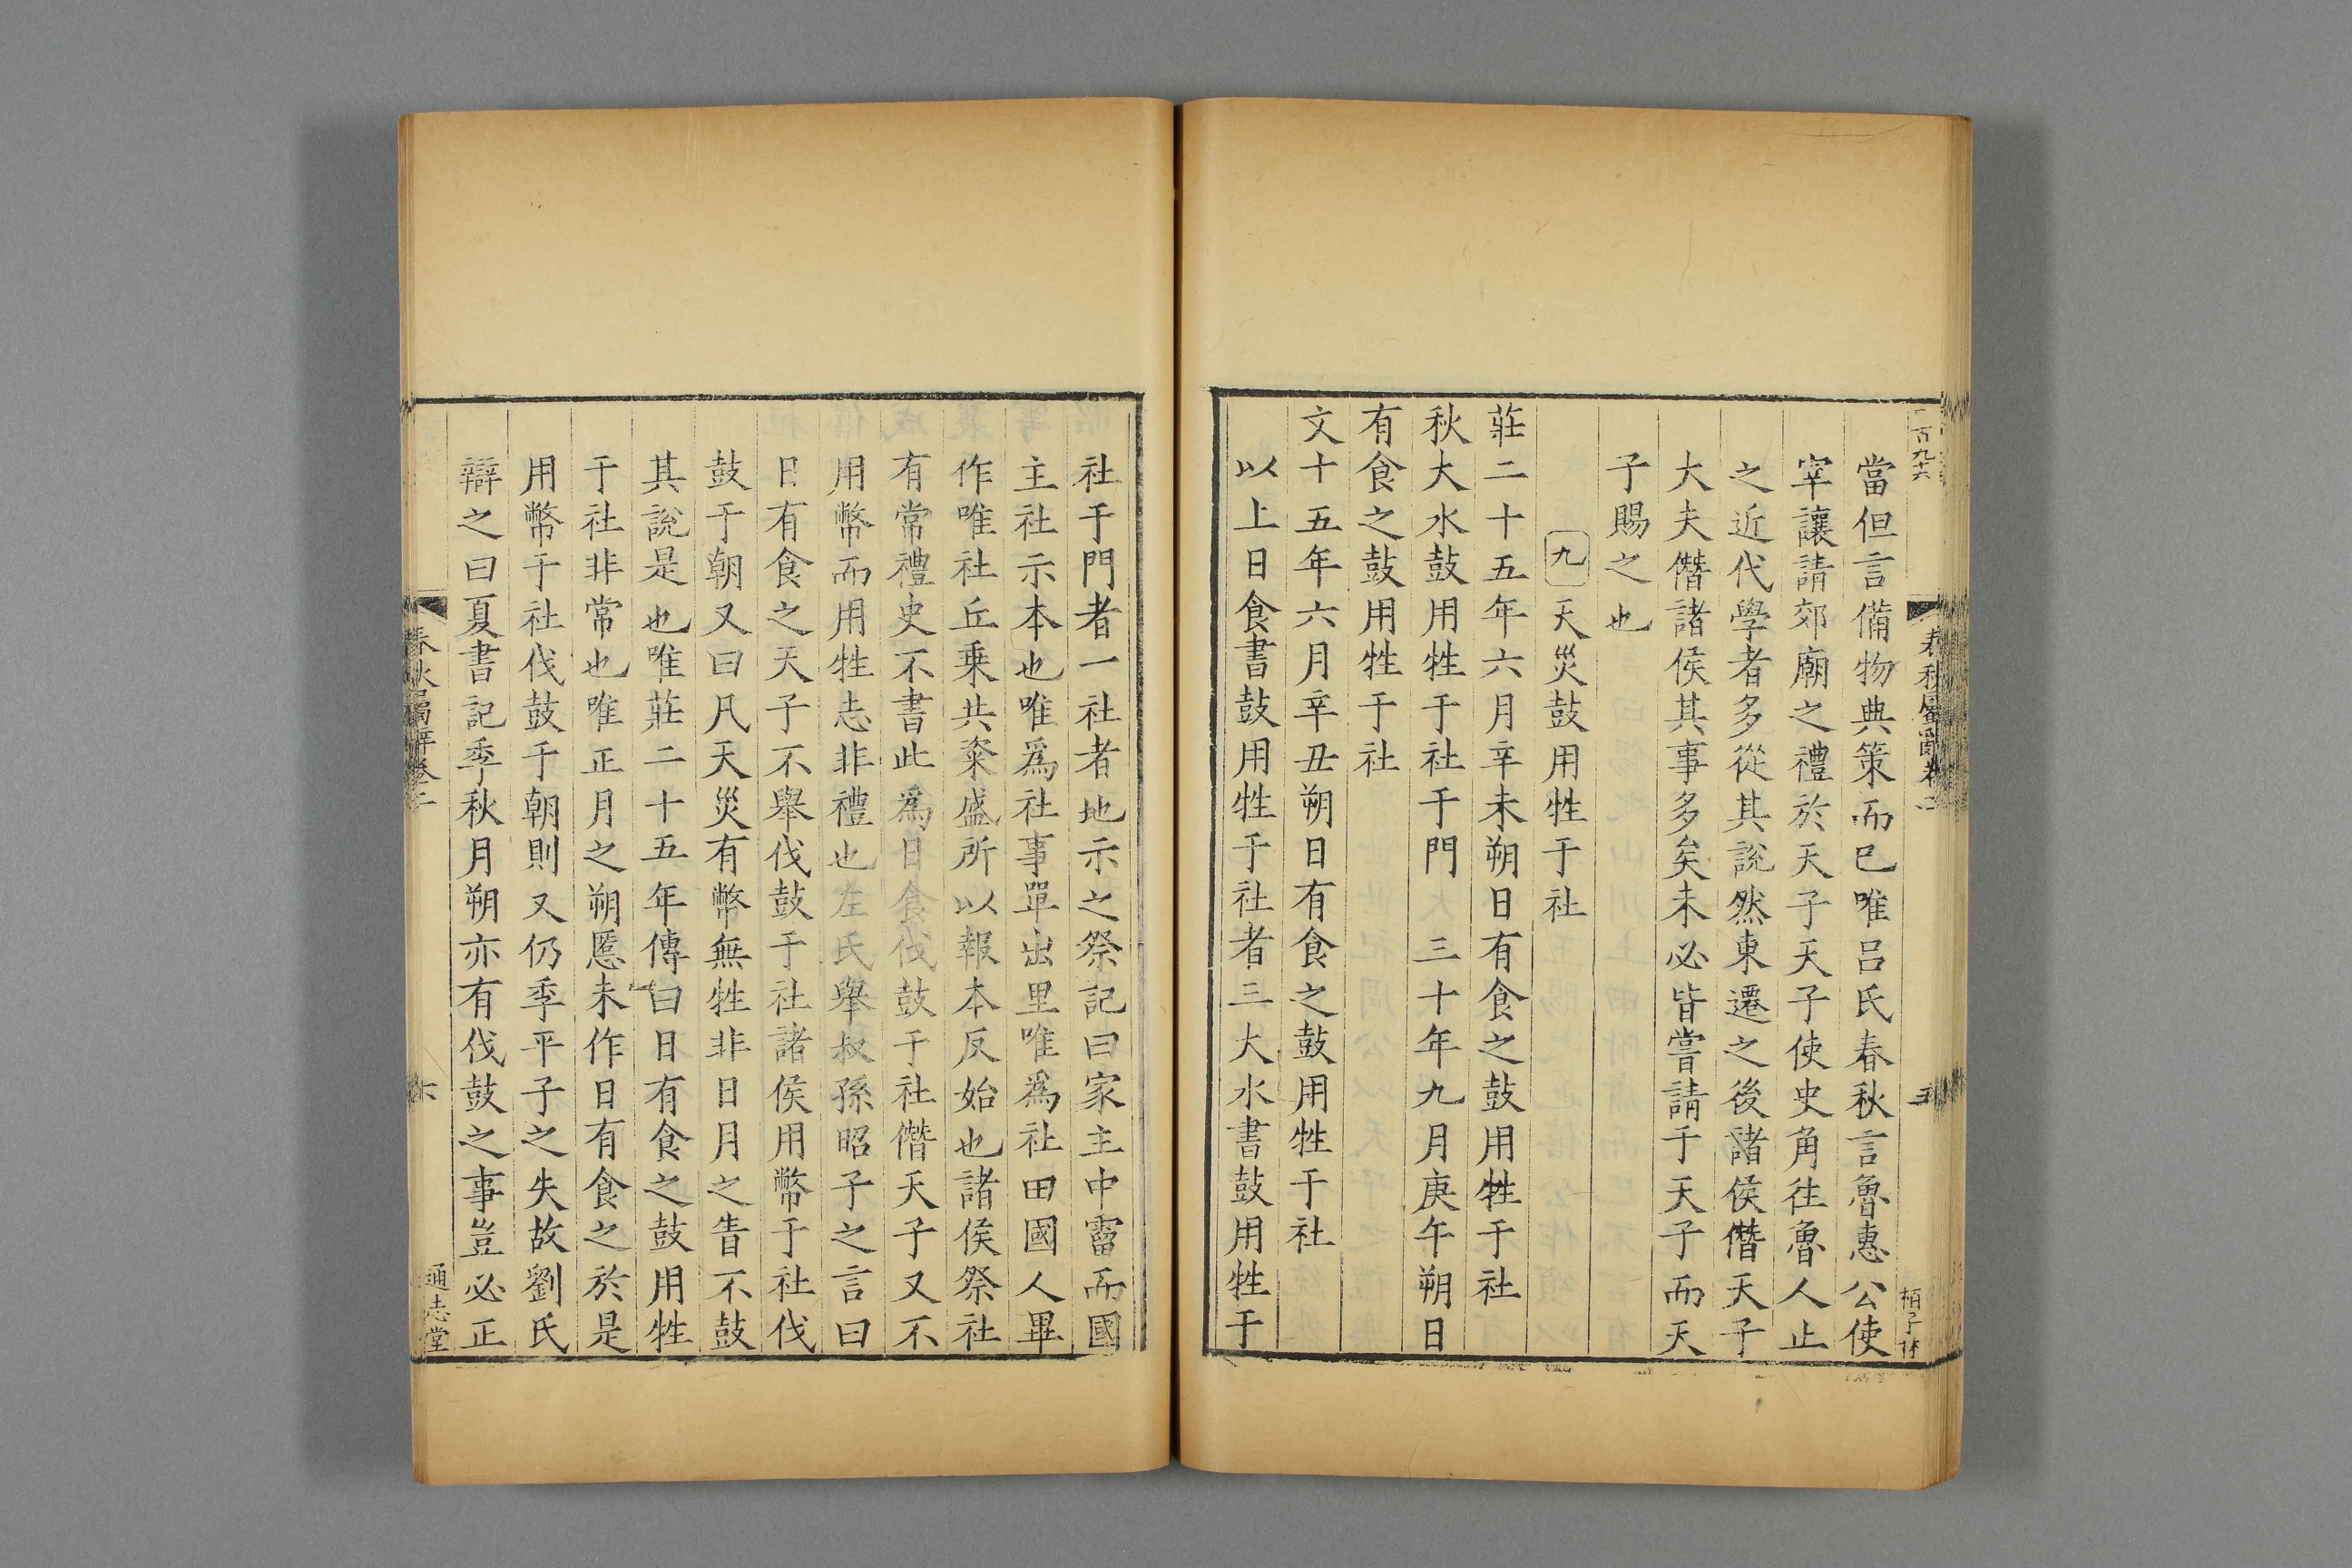 當但言備物典策而已唯呂氏春秋言魯惠公使
宰讓請郊廟之禮於天子天子使史角往魯人止
之近代學者多從其說然東遷之後諸侯僭天子
大夫僭諸侯其事多矣未必皆嘗請于天子而天
子賜之也
九 天災鼓用牲于社
莊二十五年六月辛未朔日有食之鼓用牲于社
秋大水鼓用牲于社于門 三十年九月庚午朔日
有食之鼓用牲于社
文十五年六月辛丑朔日有食之鼓用牲于社
以上日食書鼓用牲于社者三大水書鼓用牲于
社于門者一社者地示之祭記曰家主中霤而國
主社示本也唯爲社事單出里唯爲社田國人畢
作唯社丘乗共粢盛所以報本反始也諸侯祭社
有常禮史不書此爲日食伐鼓于社僭天子又不
用幣而用牲志非禮也左氏舉叔孫昭子之言曰
日有食之天子不舉伐鼓于社諸侯用幣于社伐
鼓于朝又曰凡天災有幣無牲非日月之眚不鼓
其說是也唯莊二十五年傳曰日有食之鼓用牲
于社非常也唯正月之朔慝未作日有食之於是
用幣于社伐鼓于朝則又仍季平子之失故劉氏
辯之曰夏書記季秋月朔亦有伐鼓之事豈必正
通志堂